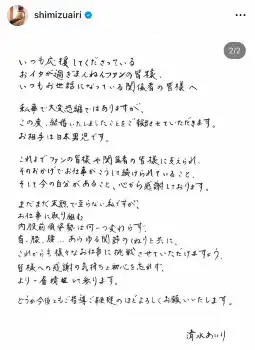 shimizuairi
2/2
いつも応援してくださっている
おイタが過ぎまんねんファンの皆様、
いつもお世話になっている関係者の皆様へ
私事で大変恐縮ではありますが、
この度、結婚いたしましたことをご報告させていただきます。
お相手は日本男児です。
これまでファンの皆様や関係者の皆様に支えられ、
そのおかげでお仕事がこうして続けられていること、
そして今の自分があること、心から感謝しております。
まだまだ未熟で至らない私ですが、
お仕事に取り組む
内股前傾姿勢は何一つ変わらず、
首、腰、膝… あらゆる関節のくねりと共に、
これからも様々なお仕事に挑戦させていただけますよう、
皆様への感謝の気持ちと初心を忘れず、
より一層精進して参ります。
どうか今後ともご指導ご鞭撻のほどよろしくお願いいたします。
清水あいり